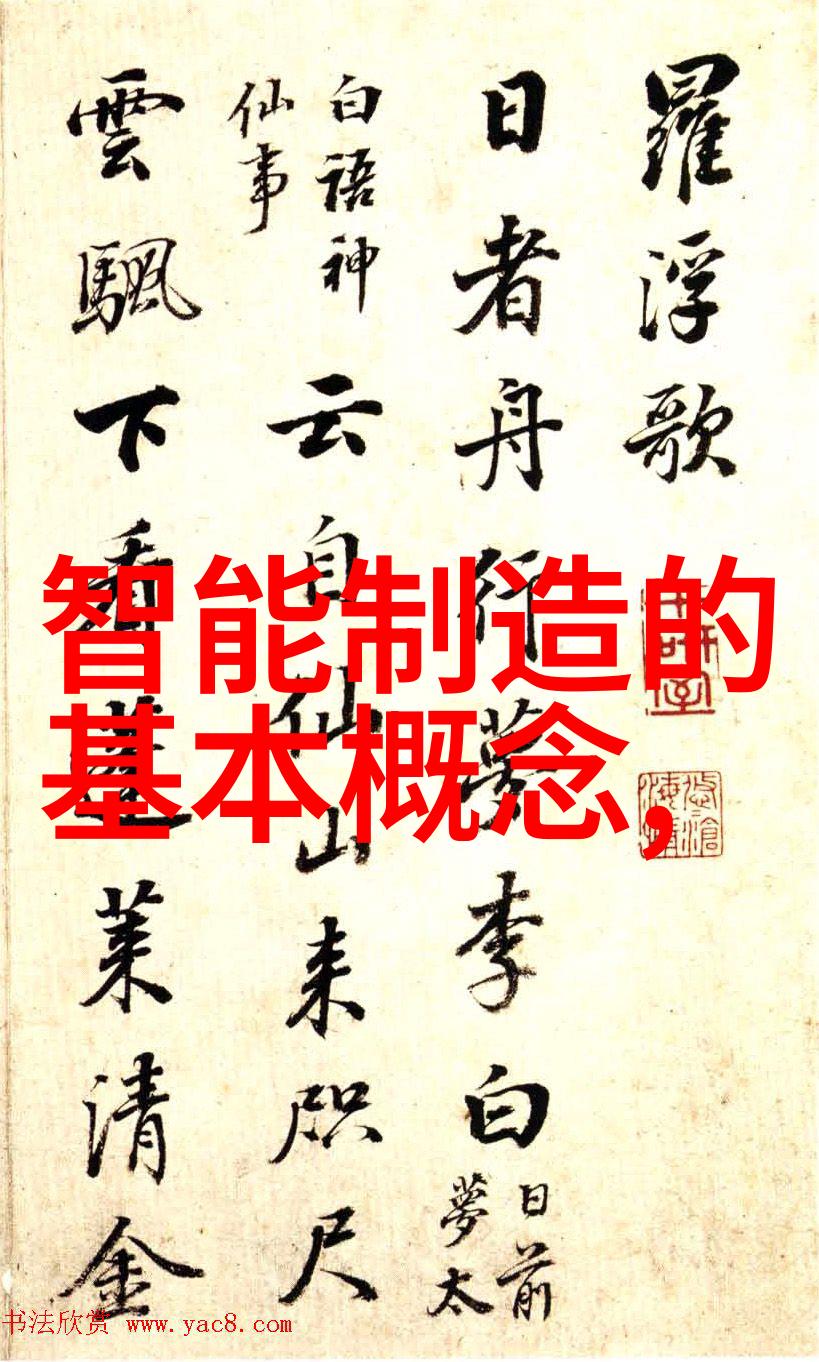 羅浮歌
日者舟行夢李白日前夢太
白語神仙事云自仙山来咫尺
雲颿下看蓬莱清金
智能制造的
基本概念,
书法欣赏 www.yac8.com